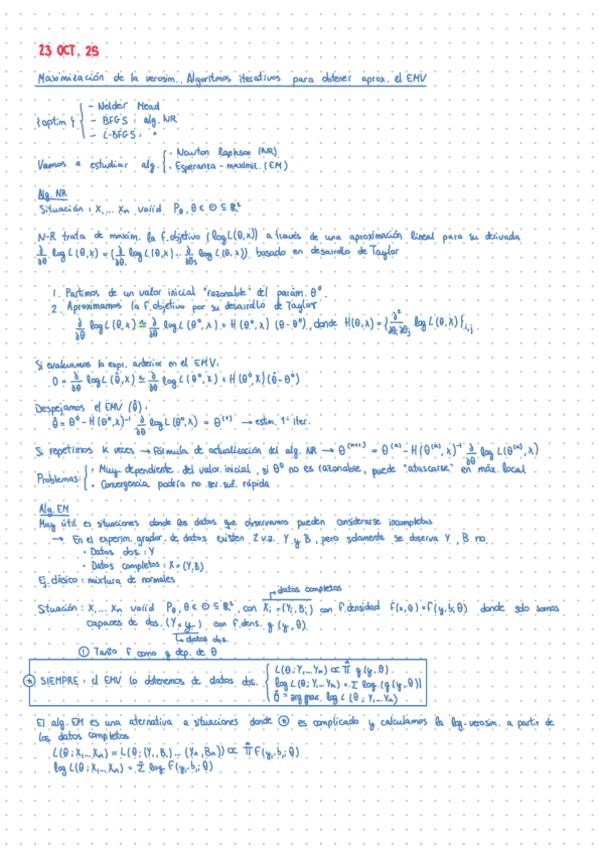 23 OCT. 25
Maximización de la verosim.. Algoritmos iterativos para obtener aprox. el EMV
{optim} { - Nelder Mead
- BFGS : alg. NR
- L-BFGS : "
Vamos a estudiar alg. { · Newton Raphson (NR)
· Esperanza - maximiz. (EM)
Alg. NR
Situación : X₁,... Xn vaiid Pθ, θ ∈ Θ ⊆ ℝ
N-R trata de maxim. la f.objetivo (log L(θ,x)) a través de una aproximación lineal para su derivada
∂/∂θ log L(θ,x) = (∂/∂θ₁ log L(θ,x) ... ∂/∂θ log L(θ,x)) basado en desarrollo de Taylor
1. Partimos de un valor inicial "razonable" del parám. θ⁰.
2. Aproximamos la f.objetivo por su desarrollo de Taylor
∂/∂θ log L(θ,x) ≅ ∂/∂θ log L(θ⁰,x) + H(θ⁰,x) (θ-θ⁰), donde H(θ,x) = {∂²/∂θᵢ∂θⱼ log L(θ,x)}ᵢ,ⱼ
Si evaluamos la expr. anterior en el EMV:
0 = ∂/∂θ log L(θ̂,x) ≅ ∂/∂θ log L(θ⁰,x) + H(θ⁰,x)(θ̂-θ⁰)
Despejamos el EMV (θ̂):
θ̂ = θ⁰ - H(θ⁰,x)⁻¹ ∂/∂θ log L(θ⁰,x) = θ⁽¹⁾ → estim. 1ª iter.
Si repetimos k veces → Fórmula de actualización del alg. NR → θ⁽ᵏ⁺¹⁾ = θ⁽ᵏ⁾ - H(θ⁽ᵏ⁾,x)⁻¹ ∂/∂θ log L(θ⁽ᵏ⁾,x)
Problemas: { · Muy dependiente del valor inicial, si θ⁰ no es razonable, puede "atascarse" en máx. local
· Convergencia podría no ser suf. rápida.
Alg. EM
Muy útil es situaciones donde los datos que observamos pueden considerarse incompletos
→ En el experim. grador. de datos existen 2 v.a. Y y B, pero solamente se observa Y, B no.
· Datos obs : Y
· Datos completos : X = (Y,B)
Ej. clásico : mixtura de normales
datos completos
Situación : X₁,... Xn vaiid Pθ, θ ∈ Θ ⊆ ℝ, con Xᵢ = (Yᵢ,Bᵢ) con f.densidad f(x,θ) = f(y,b,θ) donde solo somos
capaces de obs. (Y = y) con f.dens. g(y,θ).
datos obs.
① Tanto f como g dep. de θ
⊛ SIEMPRE : el EMV lo obtenemos de datos obs. { L(θ; Y₁,... Yn) ∝ Π g(y,θ)
log L(θ; Y₁,... Yn) = Σ log (g(y,θ))
θ̂ = arg max. log L(θ; Y₁,... Yn)
El alg. EM es una alternativa a situaciones donde ⊛ es complicado y calculamos la log-verosim. a partir de
los datos completos
L(θ; X₁... Xn) = L(θ; (Y₁,B₁) ... (Yn,Bn)) ∝ Π f(yᵢ,bᵢ; θ)
log L(θ; X₁... Xn) = Σ log f(yᵢ,bᵢ; θ)